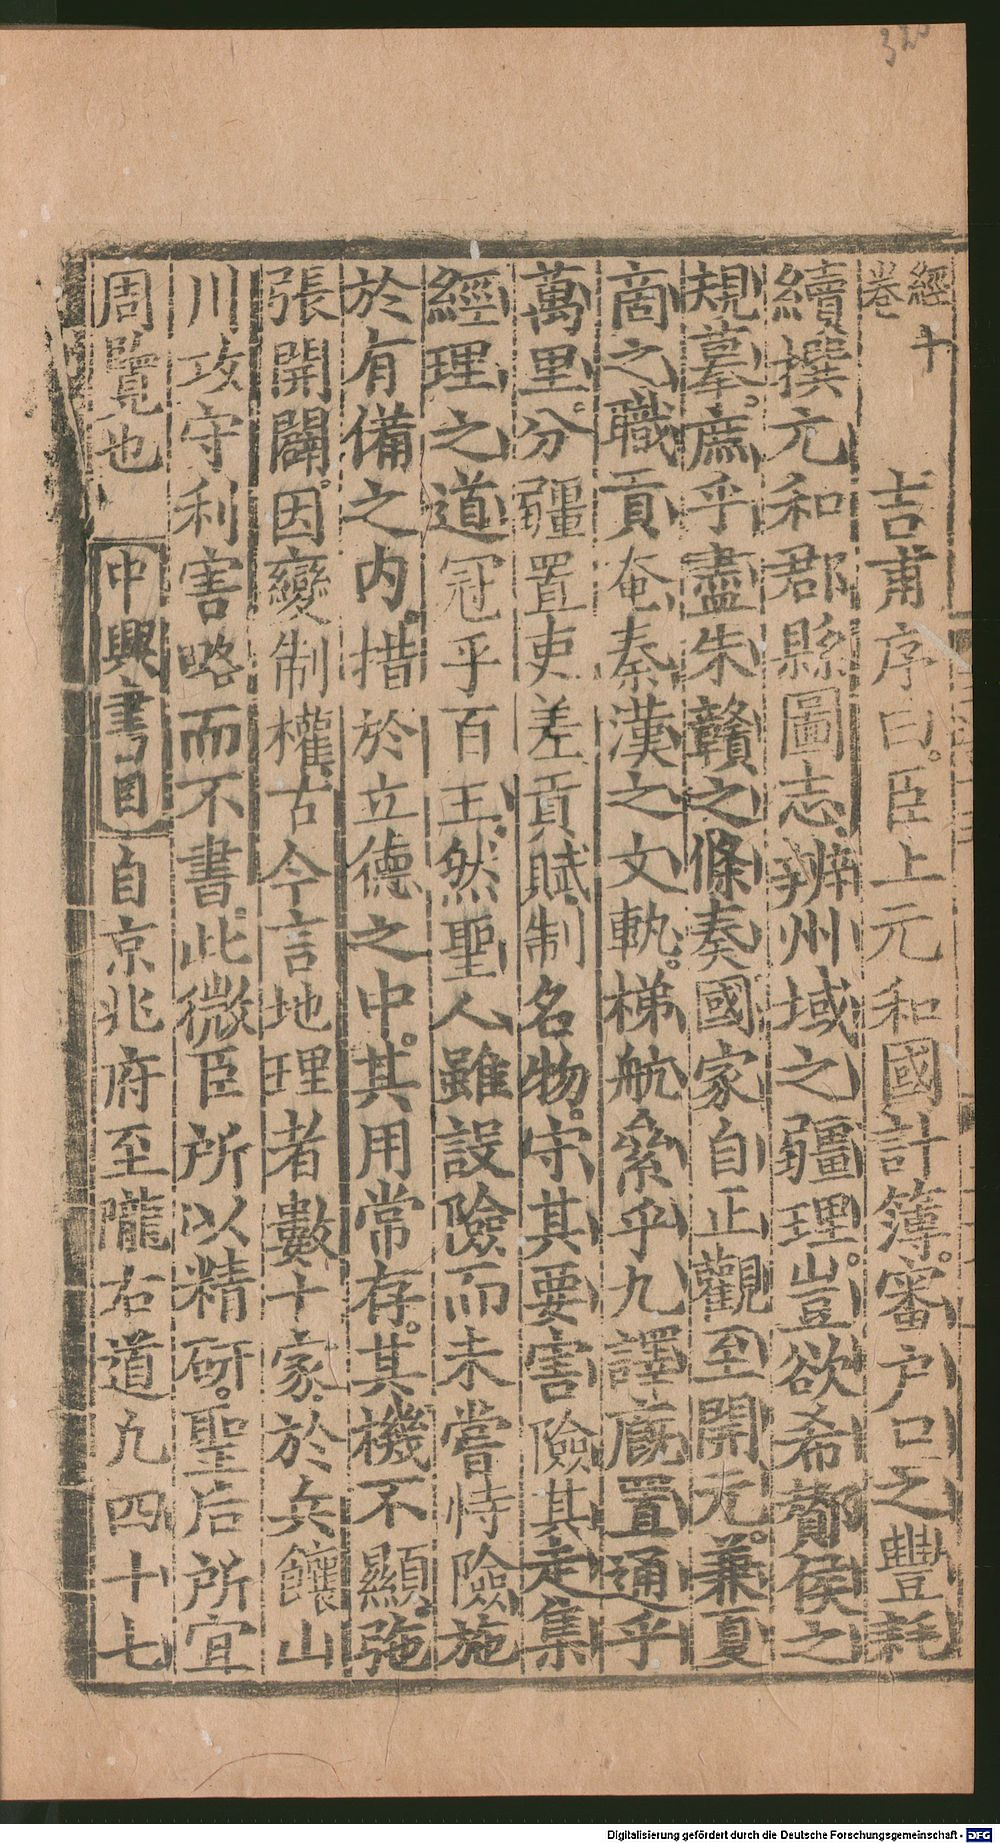 經十卷 吉甫序曰臣上元和國計簿審户口之豐耗
續撰元和郡縣圖志辨州域之疆理豈欲希酇侯之
規摹庶乎盡朱贛之條奏國家自正觀至開元兼夏
商之職貢奄秦漢之文軌梯航絫乎九譯廐置通乎
萬里分疆置吏差貢賦制名物守其要害險其走集
經理之道冠乎百王然聖人雖設險而未嘗恃險施
於有備之内措於立德之中其用常存其機不顯弛
張開闢因變制權古今言地理者數十家於兵饟山
川攻守利害略而不書此微臣所以精研聖后所宜
周覽也 中興書目 自京兆府至隴右道凡四十七
Digitalisierung gefördert durch die Deutsche Forschungsgemeinschaft - DFG